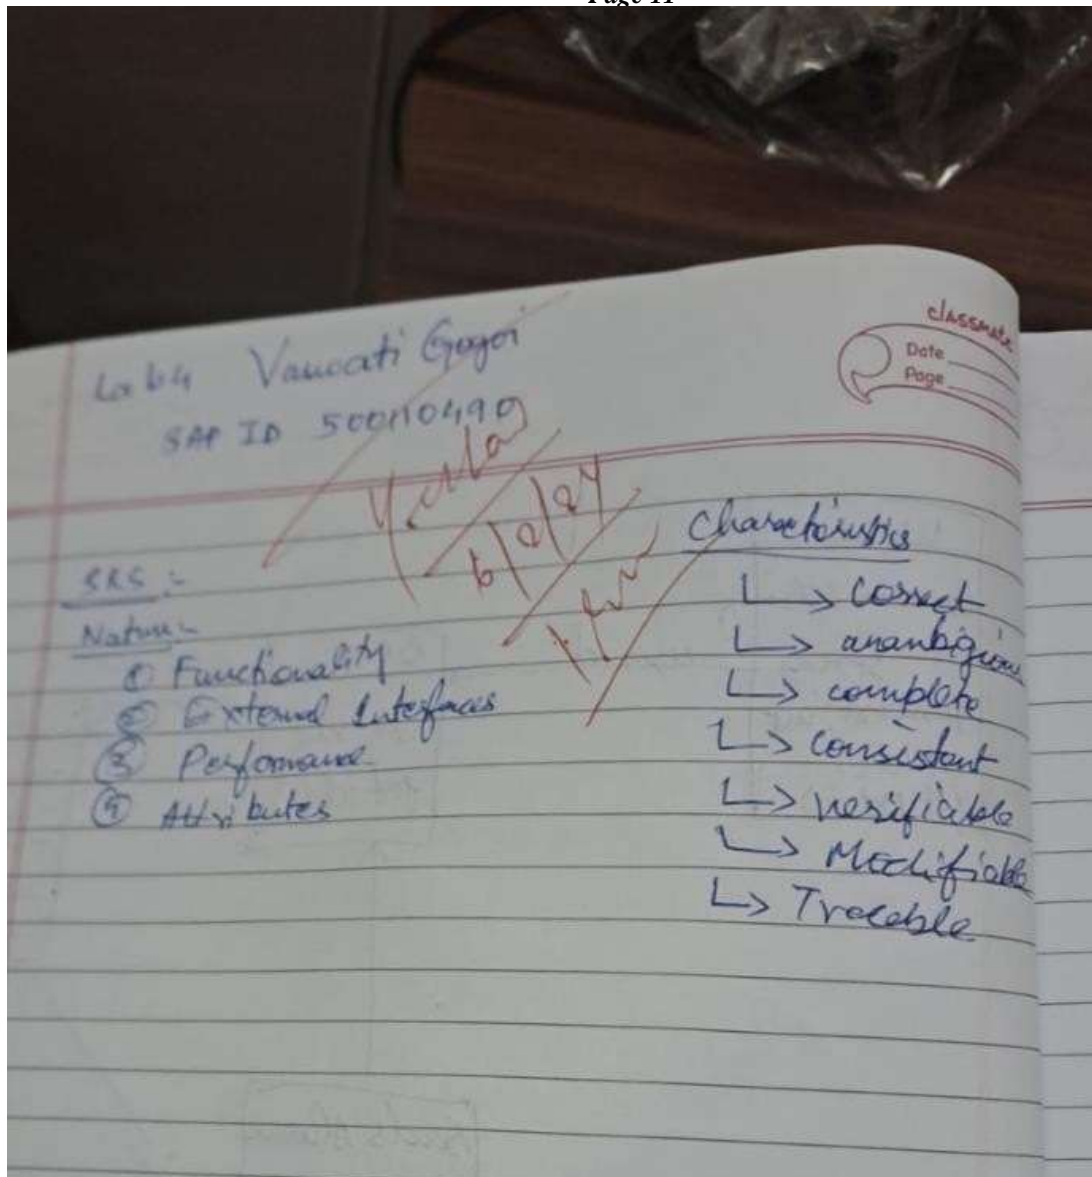 Page 11
classmate
Date
Page
Lab 4
SAP ID
SRS :-
Nature :-
① Functionality
② External Interfaces
③ Performance
④ Attributes
Characteristics
↳ correct
↳ unambigious
↳ complete
↳ consistant
↳ verifiable
↳ Modifiable
↳ Traceble